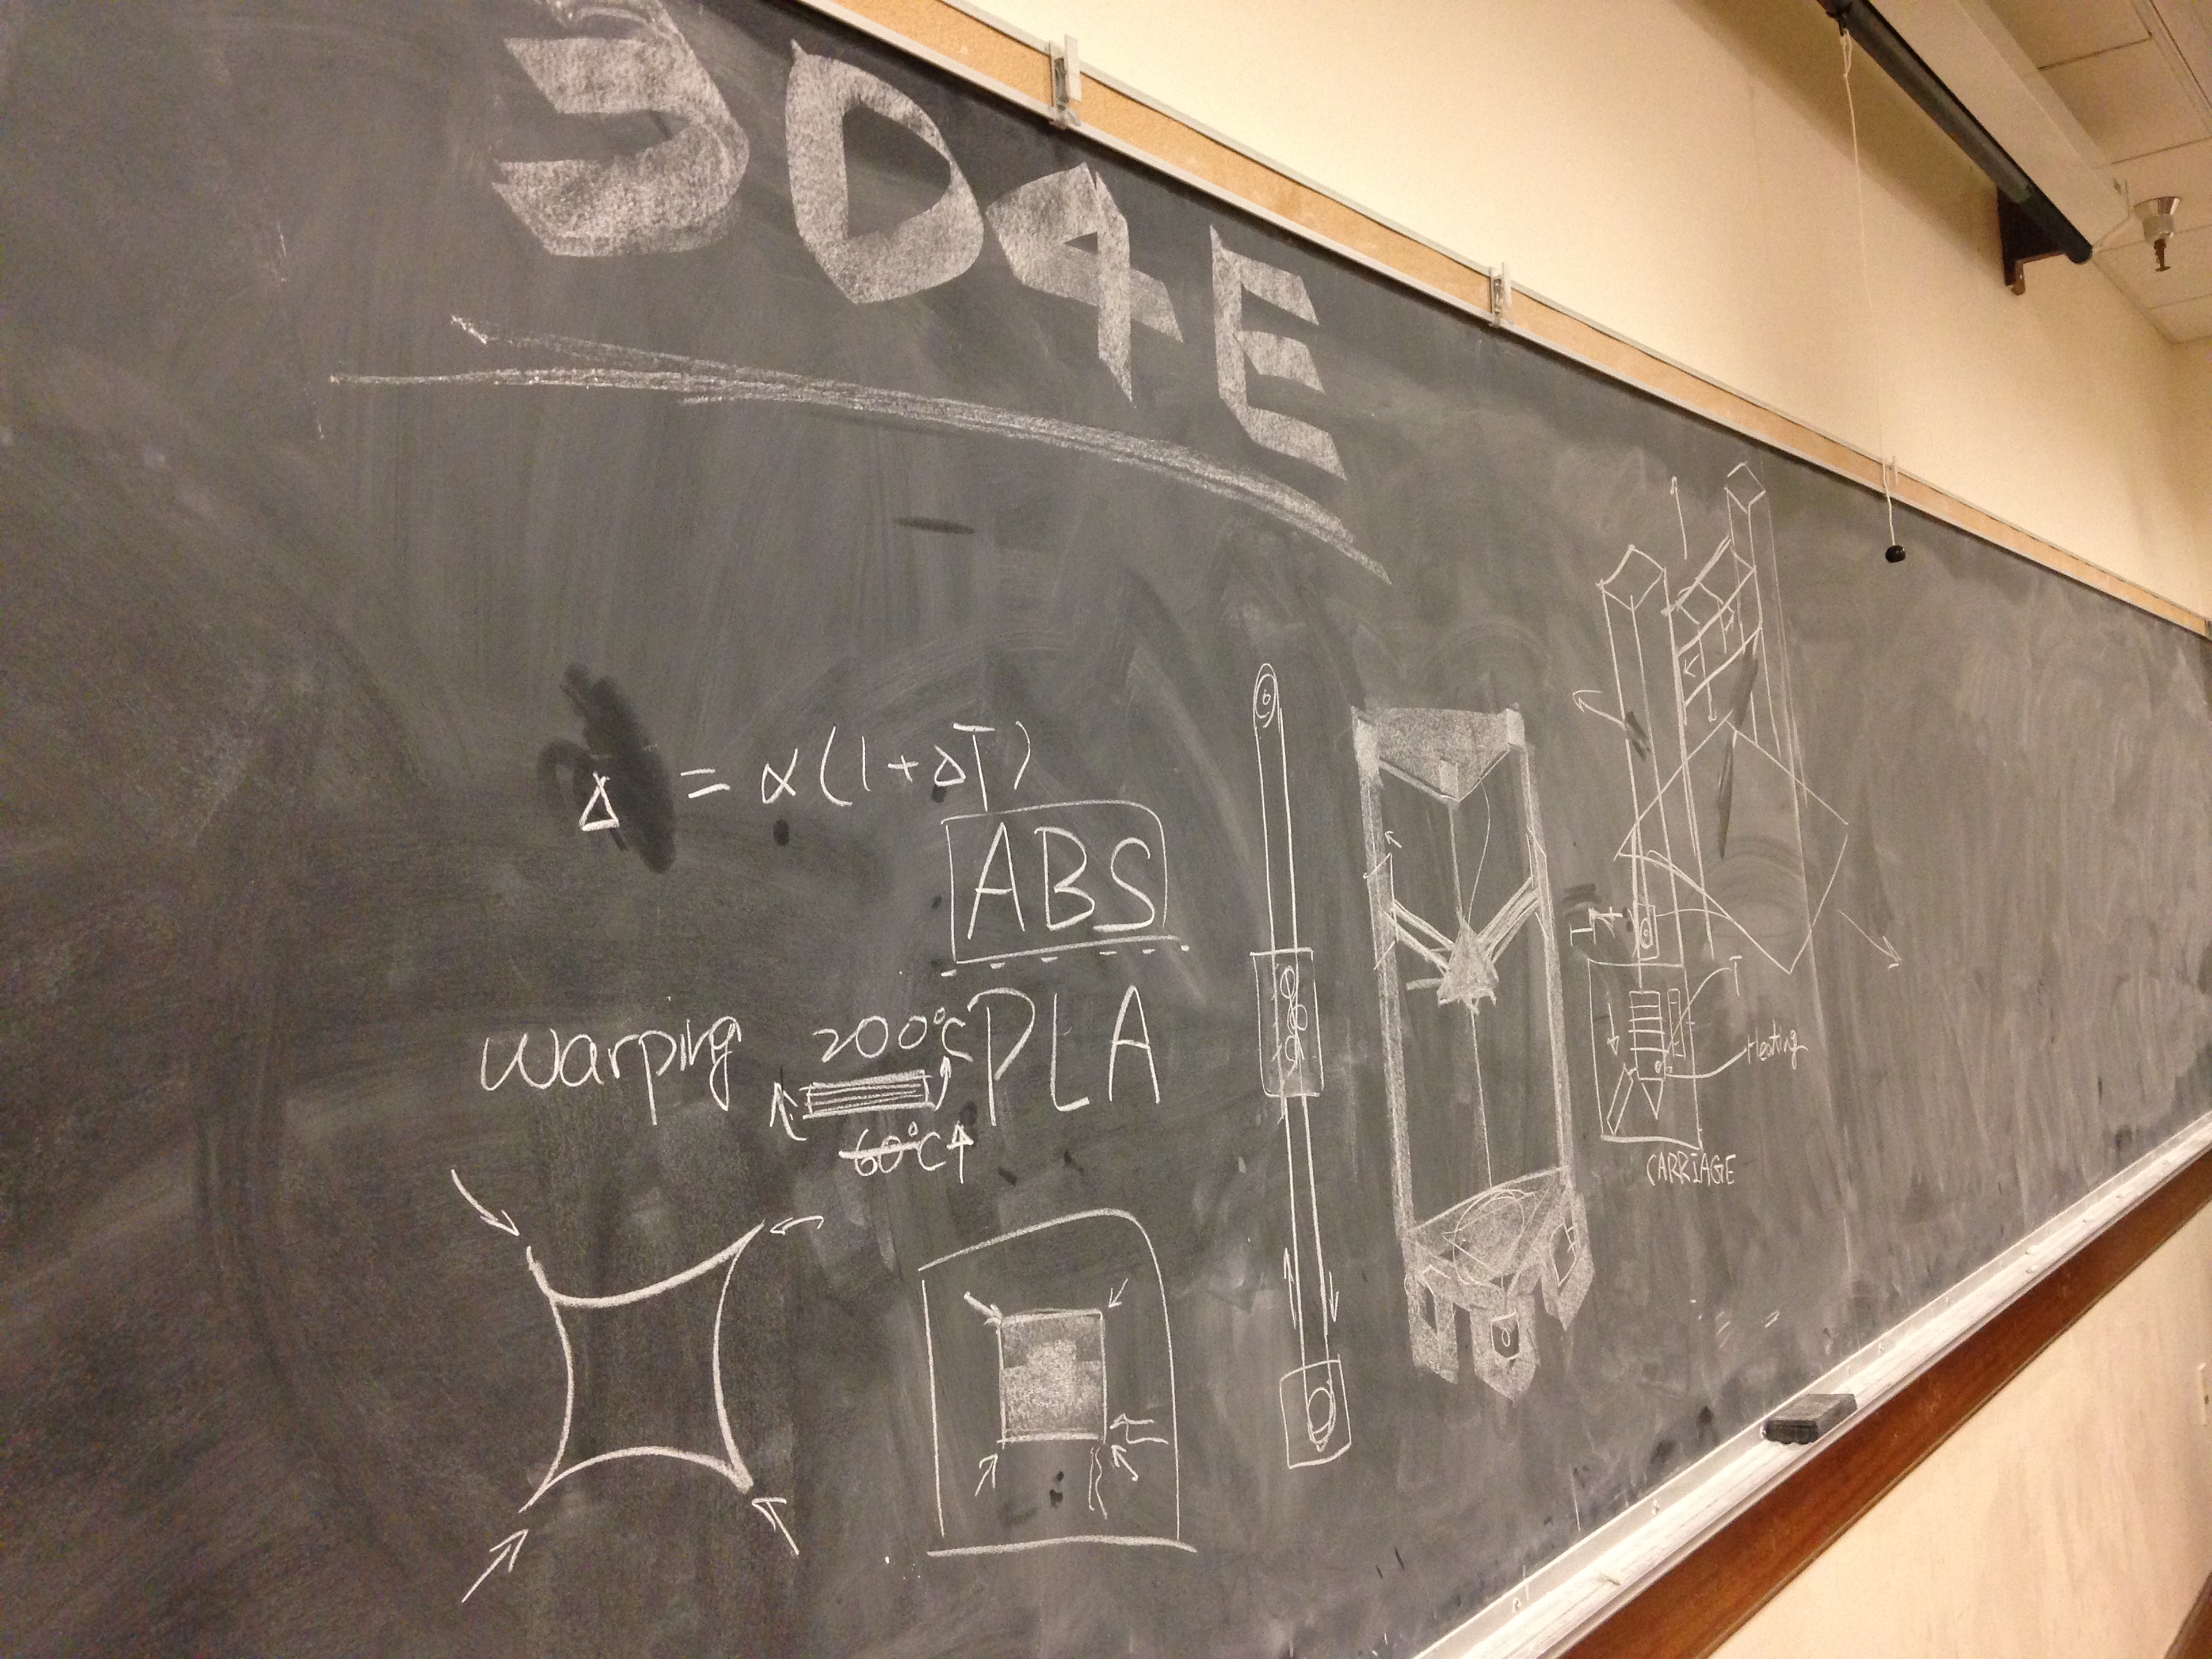 3D4E
Δ = α(1+ΔT)
ABS
warping 200°C PLA
60°C↑
Heating
CARRIAGE